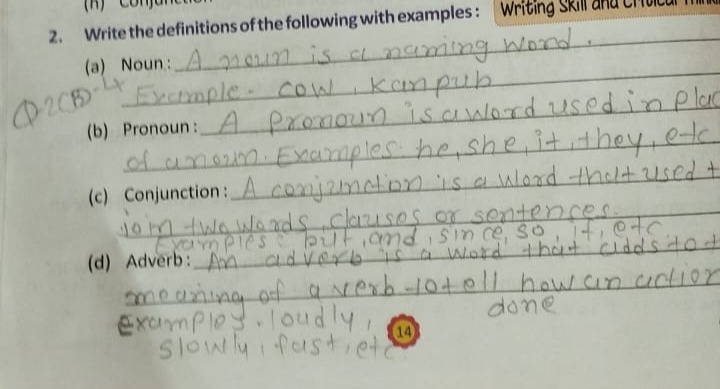 (h)
2. Write the definitions of the following with examples: Writing Skill and
(a) Noun: A noun is a naming word.
Example. cow, Kanpub
(b) Pronoun: A Pronoun is a word used in plac
of a noun. Examples he, she, it, they, etc
(c) Conjunction: A conjunction is a word that used t
join two words, clauses or sentences.
Examples: but, and, since, so, if, etc.
(d) Adverb: An adverb is a word that adds to t
meaning of a verb to tell how an action
examples. loudly, done
slowly, fast, etc
14